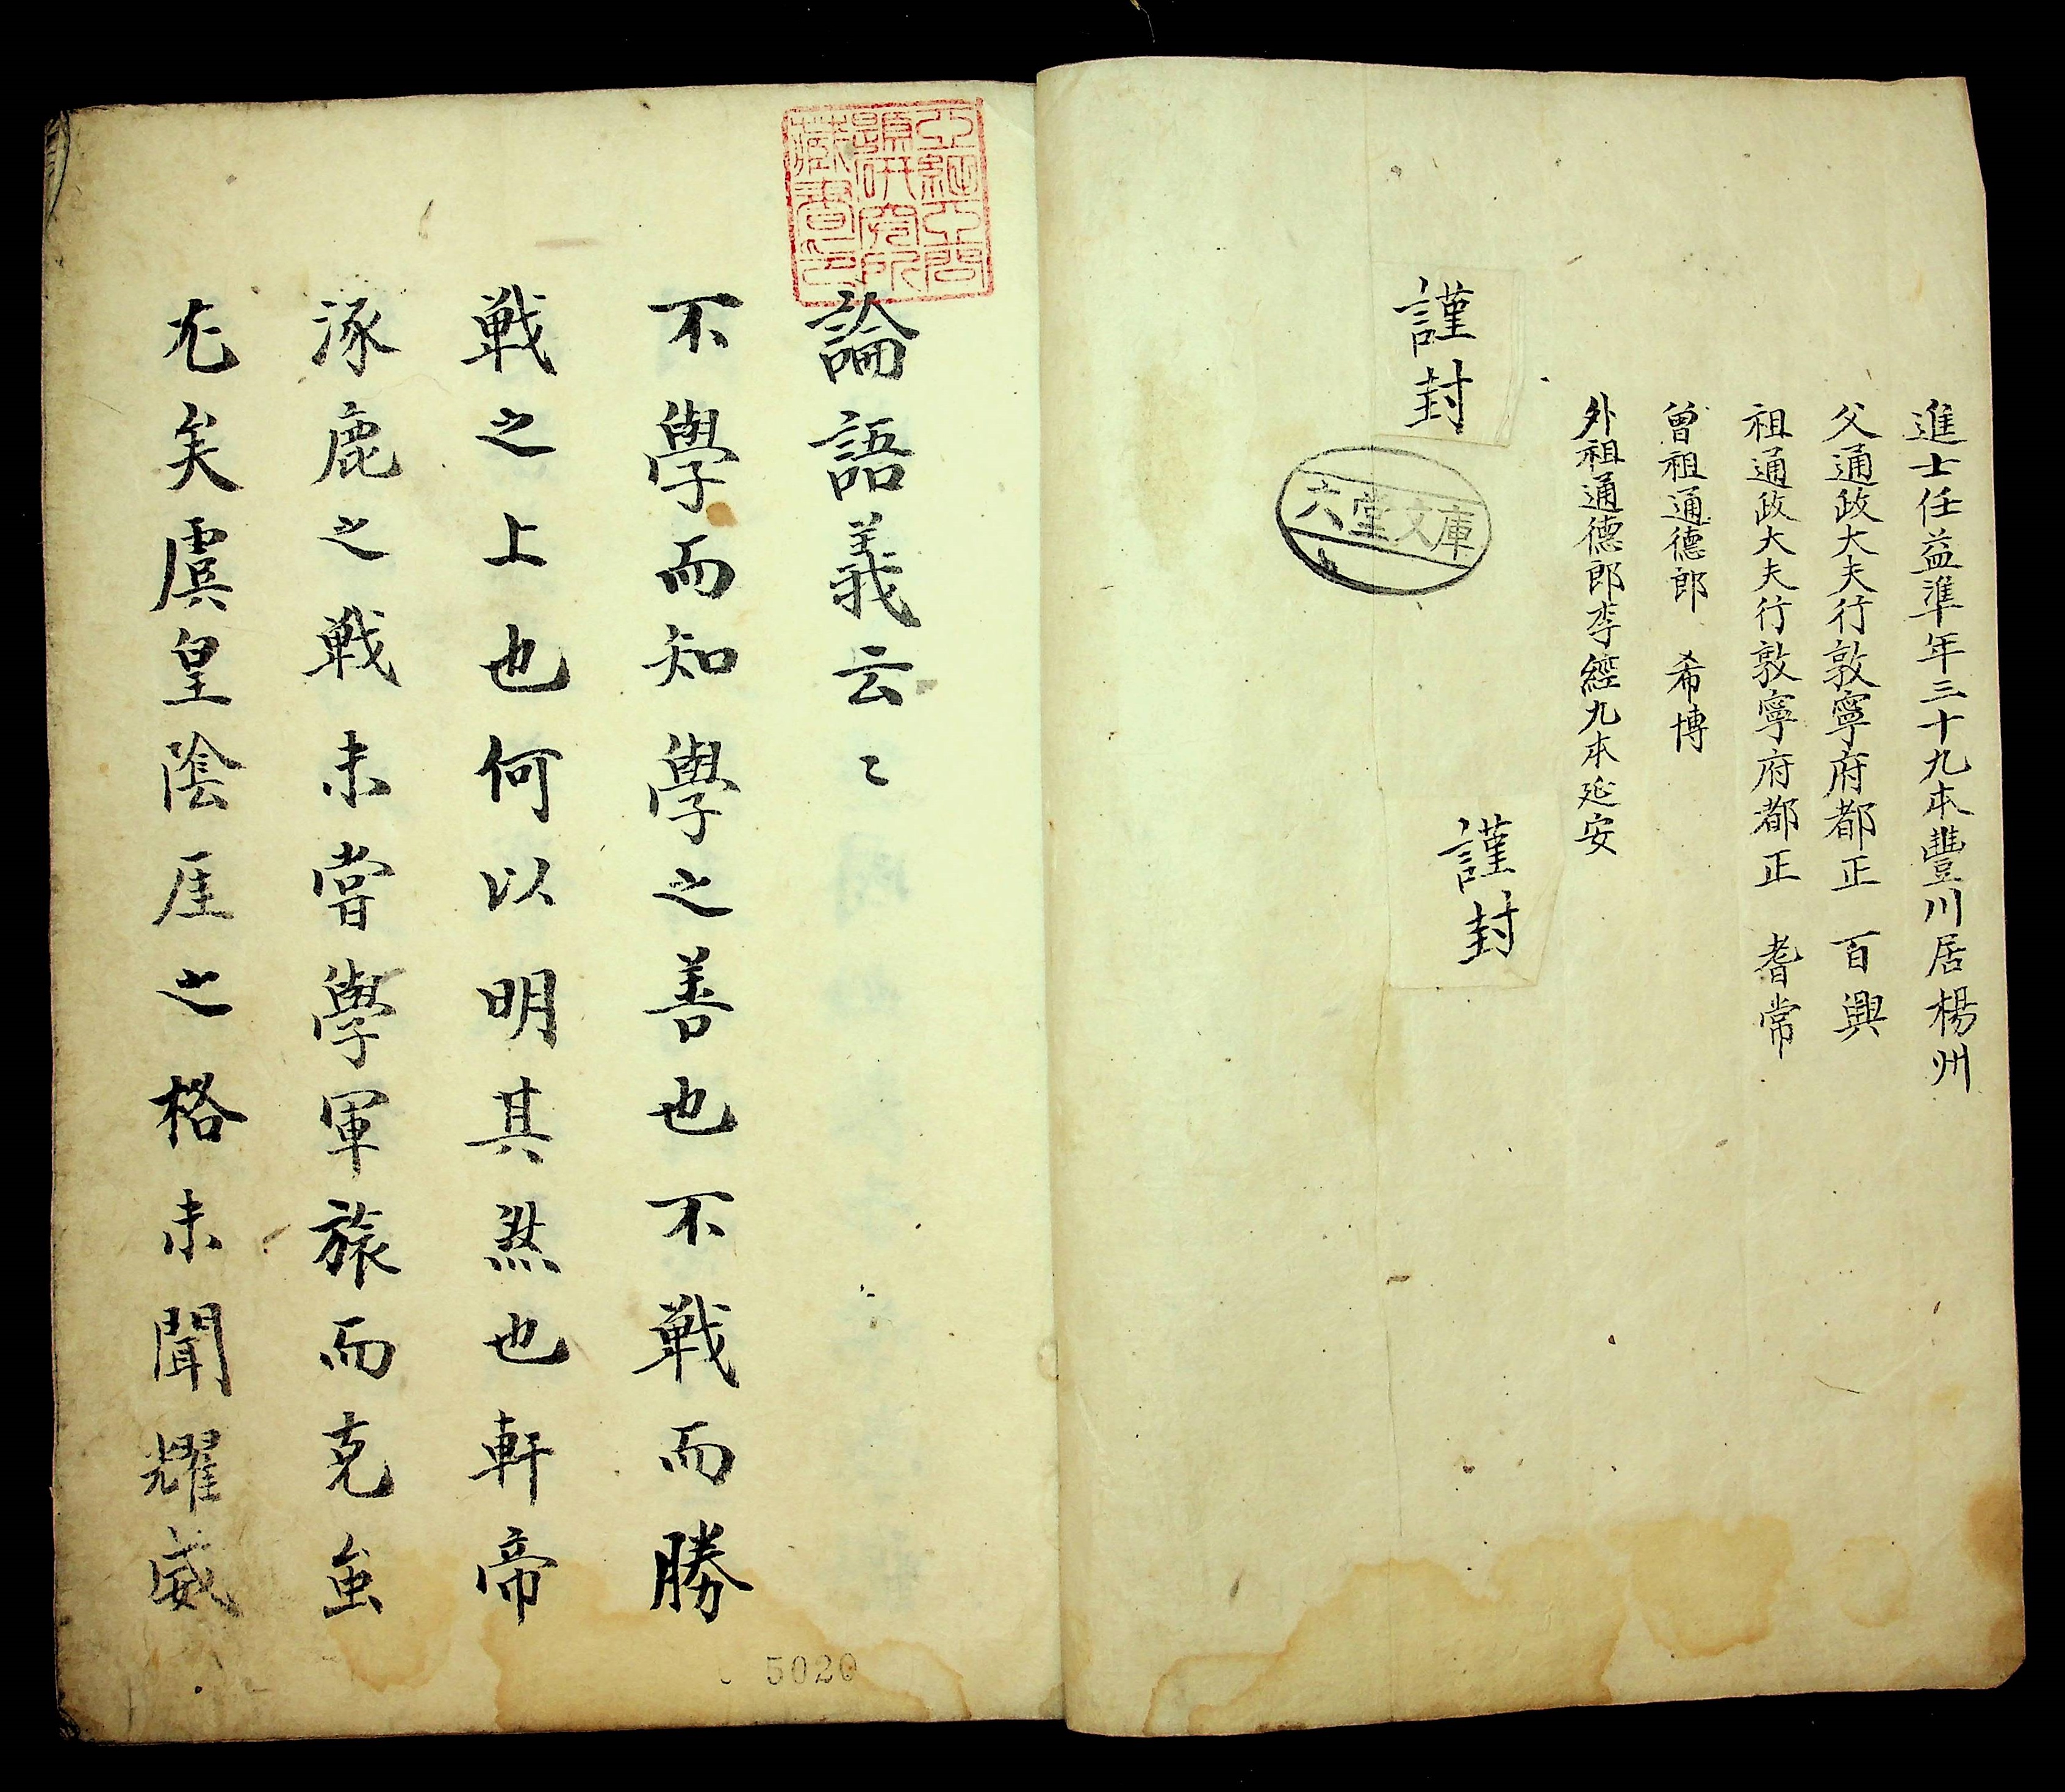 進士任益準年三十九本豐川居楊州
父通政大夫行敦寧府都正 百興
祖通政大夫行敦寧府都正 耆常
曾祖通德郎 希博
外祖通德郎李經九本延安
謹封
謹封
六堂文庫
亞細亞問
題研究所
藏書之印
論語義云〻
不學而知學之善也不戰而勝
戰之上也何以明其然也軒帝
涿鹿之戰未嘗學軍旅而克蚩
尤矣虞皇陰厓之格未聞耀威
5020